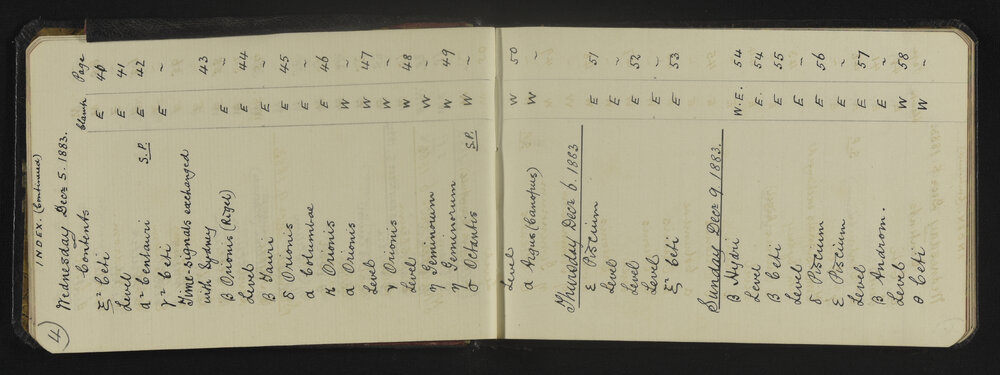 4
INDEX. (Continued)
Wednesday Decr 5. 1883.
Contents Clamp Page
ξ² Ceti E 40
Level E 41
α² Centauri S.P. E 42
γ² Ceti E "
Time-signals exchanged
with Sydney 43
β Orionis (Rigel) E "
Level E 44
β Tauri E "
δ Orionis E 45
α Columbae E "
κ Orionis E 46
α Orionis W "
Level W 47
ν Orionis W "
Level W 48
η Geminorum W "
η Geminorum W 49
σ Octantis S.P. W "
Level W 50
α Argus (Canopus) W "
Thursday Decr 6. 1883
ε Piscium E 51
Level E "
Level E 52
Level E "
ξ² Ceti E 53
Sunday Decr 9. 1883.
β Hydri W.E. 54
Level E. 54
β Ceti E 55
Level E "
δ Piscium E 56
ε Piscium E "
Level E 57
β Androm. E "
Level W 58
θ Ceti W "